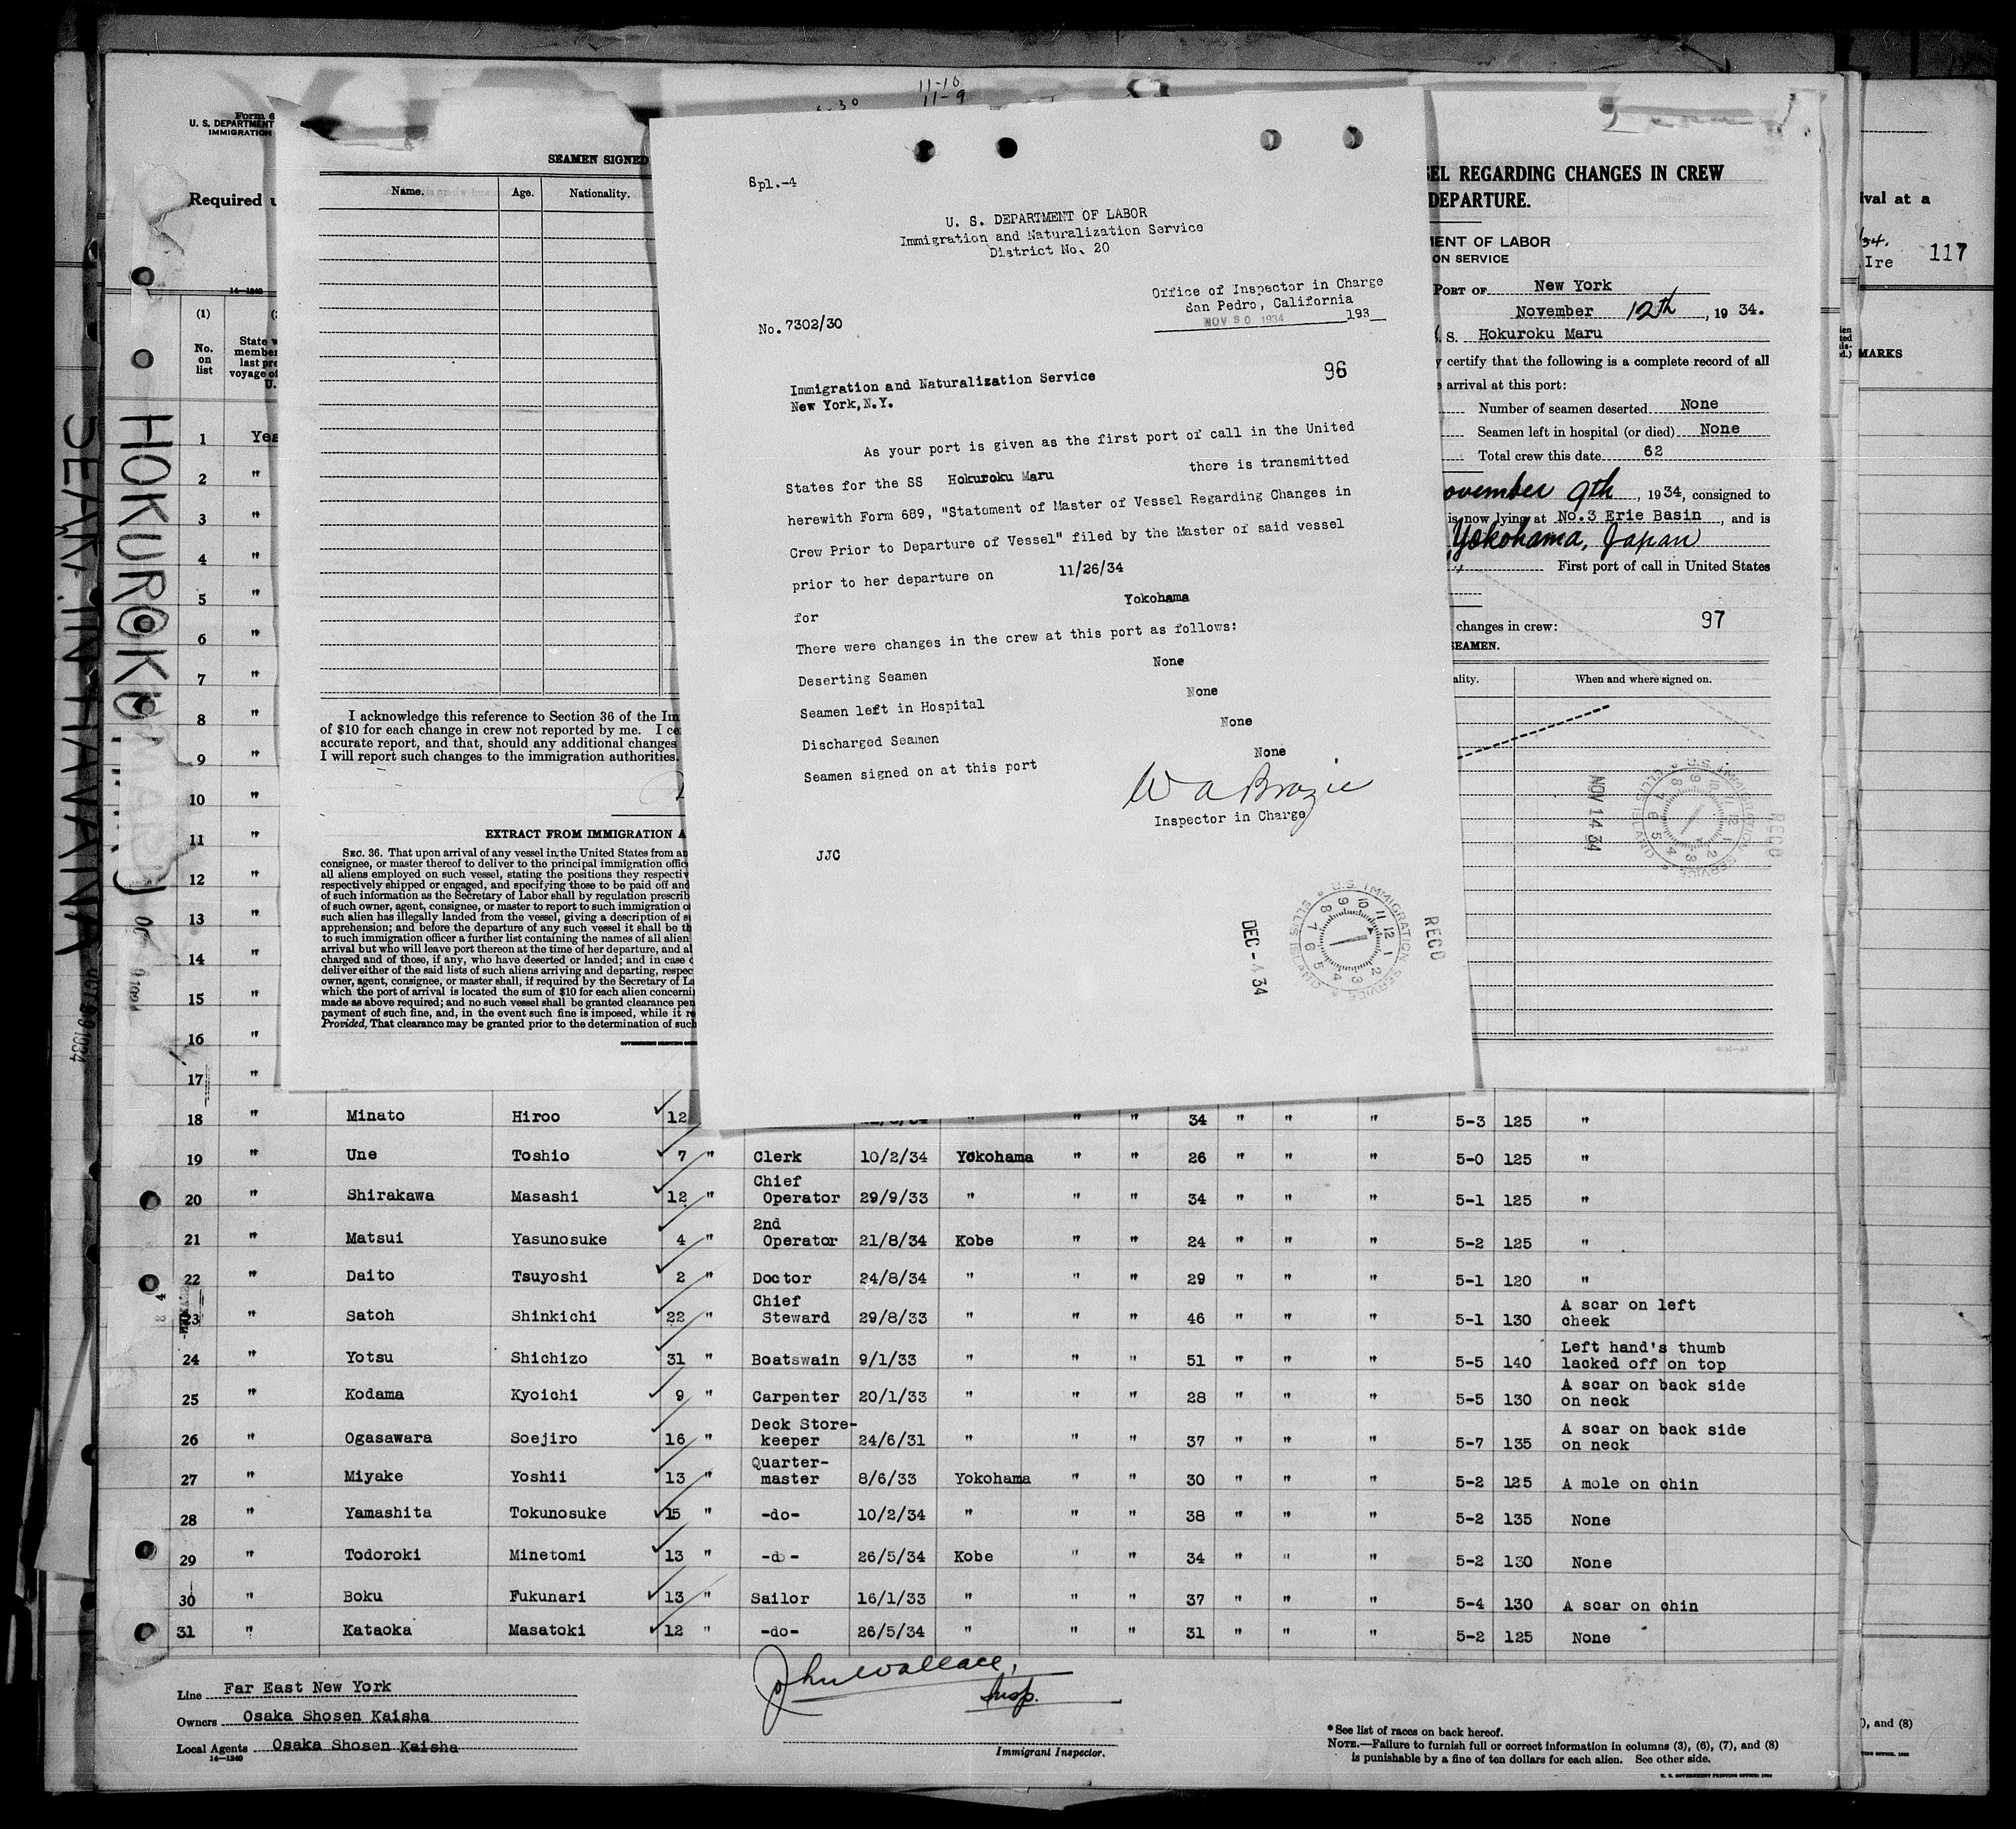 11-18
11-9
Form 6
U. S. DEPARTMENT
IMMIGRATION
Required
14—1240
(1)
No. on list
State w
member
last pre
voyage of
U.
HOKUROKU MARU
SEAR. IN HAVANA
1 Yes
2 "
3 "
4 "
5 "
6 "
7 "
8 "
9 "
10 "
11 "
12 "
13 "
14 "
15 "
16 "
17 "
SEAMEN SIGNED
Name. Age. Nationality.
I acknowledge this reference to Section 36 of the Im
of $10 for each change in crew not reported by me. I ce
accurate report, and that, should any additional changes
I will report such changes to the immigration authorities.
EXTRACT FROM IMMIGRATION A
SEC. 36. That upon arrival of any vessel in the United States from an
consignee, or master thereof to deliver to the principal immigration offic
all aliens employed on such vessel, stating the positions they respectiv
respectively shipped or engaged, and specifying those to be paid off and
of such information as the Secretary of Labor shall by regulation prescrib
of such owner, agent, consignee, or master to report to such immigration o
such alien has illegally landed from the vessel, giving a description of s
apprehension; and before the departure of any such vessel it shall be th
to such immigration officer a further list containing the names of all alien
arrival but who will leave port thereon at the time of her departure, and al
charged and of those, if any, who have deserted or landed; and in case o
deliver either of the said lists of such aliens arriving and departing, respec
owner, agent, consignee, or master shall, if required by the Secretary of La
which the port of arrival is located the sum of $10 for each alien concerni
made as above required; and no such vessel shall be granted clearance pen
payment of such fine, and, in the event such fine is imposed, while it re
Provided, That clearance may be granted prior to the determination of such
Spl.-4
U. S. DEPARTMENT OF LABOR
Immigration and Naturalization Service
District No. 20
Office of Inspector in Charge
San Pedro, California
No. 7302/30
NOV 30 1934 193
96
Immigration and Naturalization Service
New York, N.Y.
As your port is given as the first port of call in the United
States for the SS Hokuroku Maru there is transmitted
herewith Form 689, "Statement of Master of Vessel Regarding Changes in
Crew Prior to Departure of Vessel" filed by the Master of said vessel
prior to her departure on 11/26/34
for Yokohama
There were changes in the crew at this port as follows:
Deserting Seamen None
Seamen left in Hospital None
Discharged Seamen None
Seamen signed on at this port None
W a Brazie
Inspector in Charge
JJC
DEC -4 34
U.S. IMMIGRATION SERVICE ELLIS ISLAND
RECD
SEL REGARDING CHANGES IN CREW
DEPARTURE.
MENT OF LABOR
ON SERVICE
PORT OF New York
November 12th, 1934.
S. S. Hokuroku Maru
y certify that the following is a complete record of all
arrival at this port:
Number of seamen deserted None
Seamen left in hospital (or died) None
Total crew this date 62
ovember 9th, 1934, consigned to
is now lying at No.3 Erie Basin, and is
Yokohama, Japan
First port of call in United States
changes in crew: 97
SEAMEN.
ality. When and where signed on.
NOV 14 34
U.S. IMMIGRATION SERVICE ELLIS ISLAND
RECD
ival at a
/34.
Ire 117
MARKS
18 " Minato Hiroo 12 34 " " " 5-3 125 "
19 " Une Toshio 7 " Clerk 10/2/34 Yokohama " " 26 " " " 5-0 125 "
20 " Shirakawa Masashi 12 " Chief Operator 29/9/33 " " " 34 " " " 5-1 125 "
21 " Matsui Yasunosuke 4 " 2nd Operator 21/8/34 Kobe " " 24 " " " 5-2 125 "
22 " Daito Tsuyoshi 2 " Doctor 24/8/34 " " " 29 " " " 5-1 120 "
23 " Satoh Shinkichi 22 " Chief Steward 29/8/33 " " " 46 " " " 5-1 130 A scar on left cheek
24 " Yotsu Shichizo 31 " Boatswain 9/1/33 " " " 51 " " " 5-5 140 Left hand's thumb lacked off on top
25 " Kodama Kyoichi 9 " Carpenter 20/1/33 " " " 28 " " " 5-5 130 A scar on back side on neck
26 " Ogasawara Soejiro 16 " Deck Store-keeper 24/6/31 " " " 37 " " " 5-7 135 A scar on back side on neck
27 " Miyake Yoshii 13 " Quarter-master 8/6/33 Yokohama " " 30 " " " 5-2 125 A mole on chin
28 " Yamashita Tokunosuke 15 " -do- 10/2/34 " " " 38 " " " 5-2 135 None
29 " Todoroki Minetomi 13 " -do- 26/5/34 Kobe " " 34 " " " 5-2 130 None
30 " Boku Fukunari 13 " Sailor 16/1/33 " " " 37 " " " 5-4 130 A scar on chin
31 " Kataoka Masatoki 12 " -do- 26/5/34 " " " 31 " " " 5-2 125 None
Line Far East New York
Owners Osaka Shosen Kaisha
Local Agents Osaka Shosen Kaisha
14—1240
John Wallace,
Insp.
Immigrant Inspector.
*See list of races on back hereof.
NOTE.—Failure to furnish full or correct information in columns (3), (6), (7), and (8)
is punishable by a fine of ten dollars for each alien. See other side.
U. S. GOVERNMENT PRINTING OFFICE: 1930
), and (8)